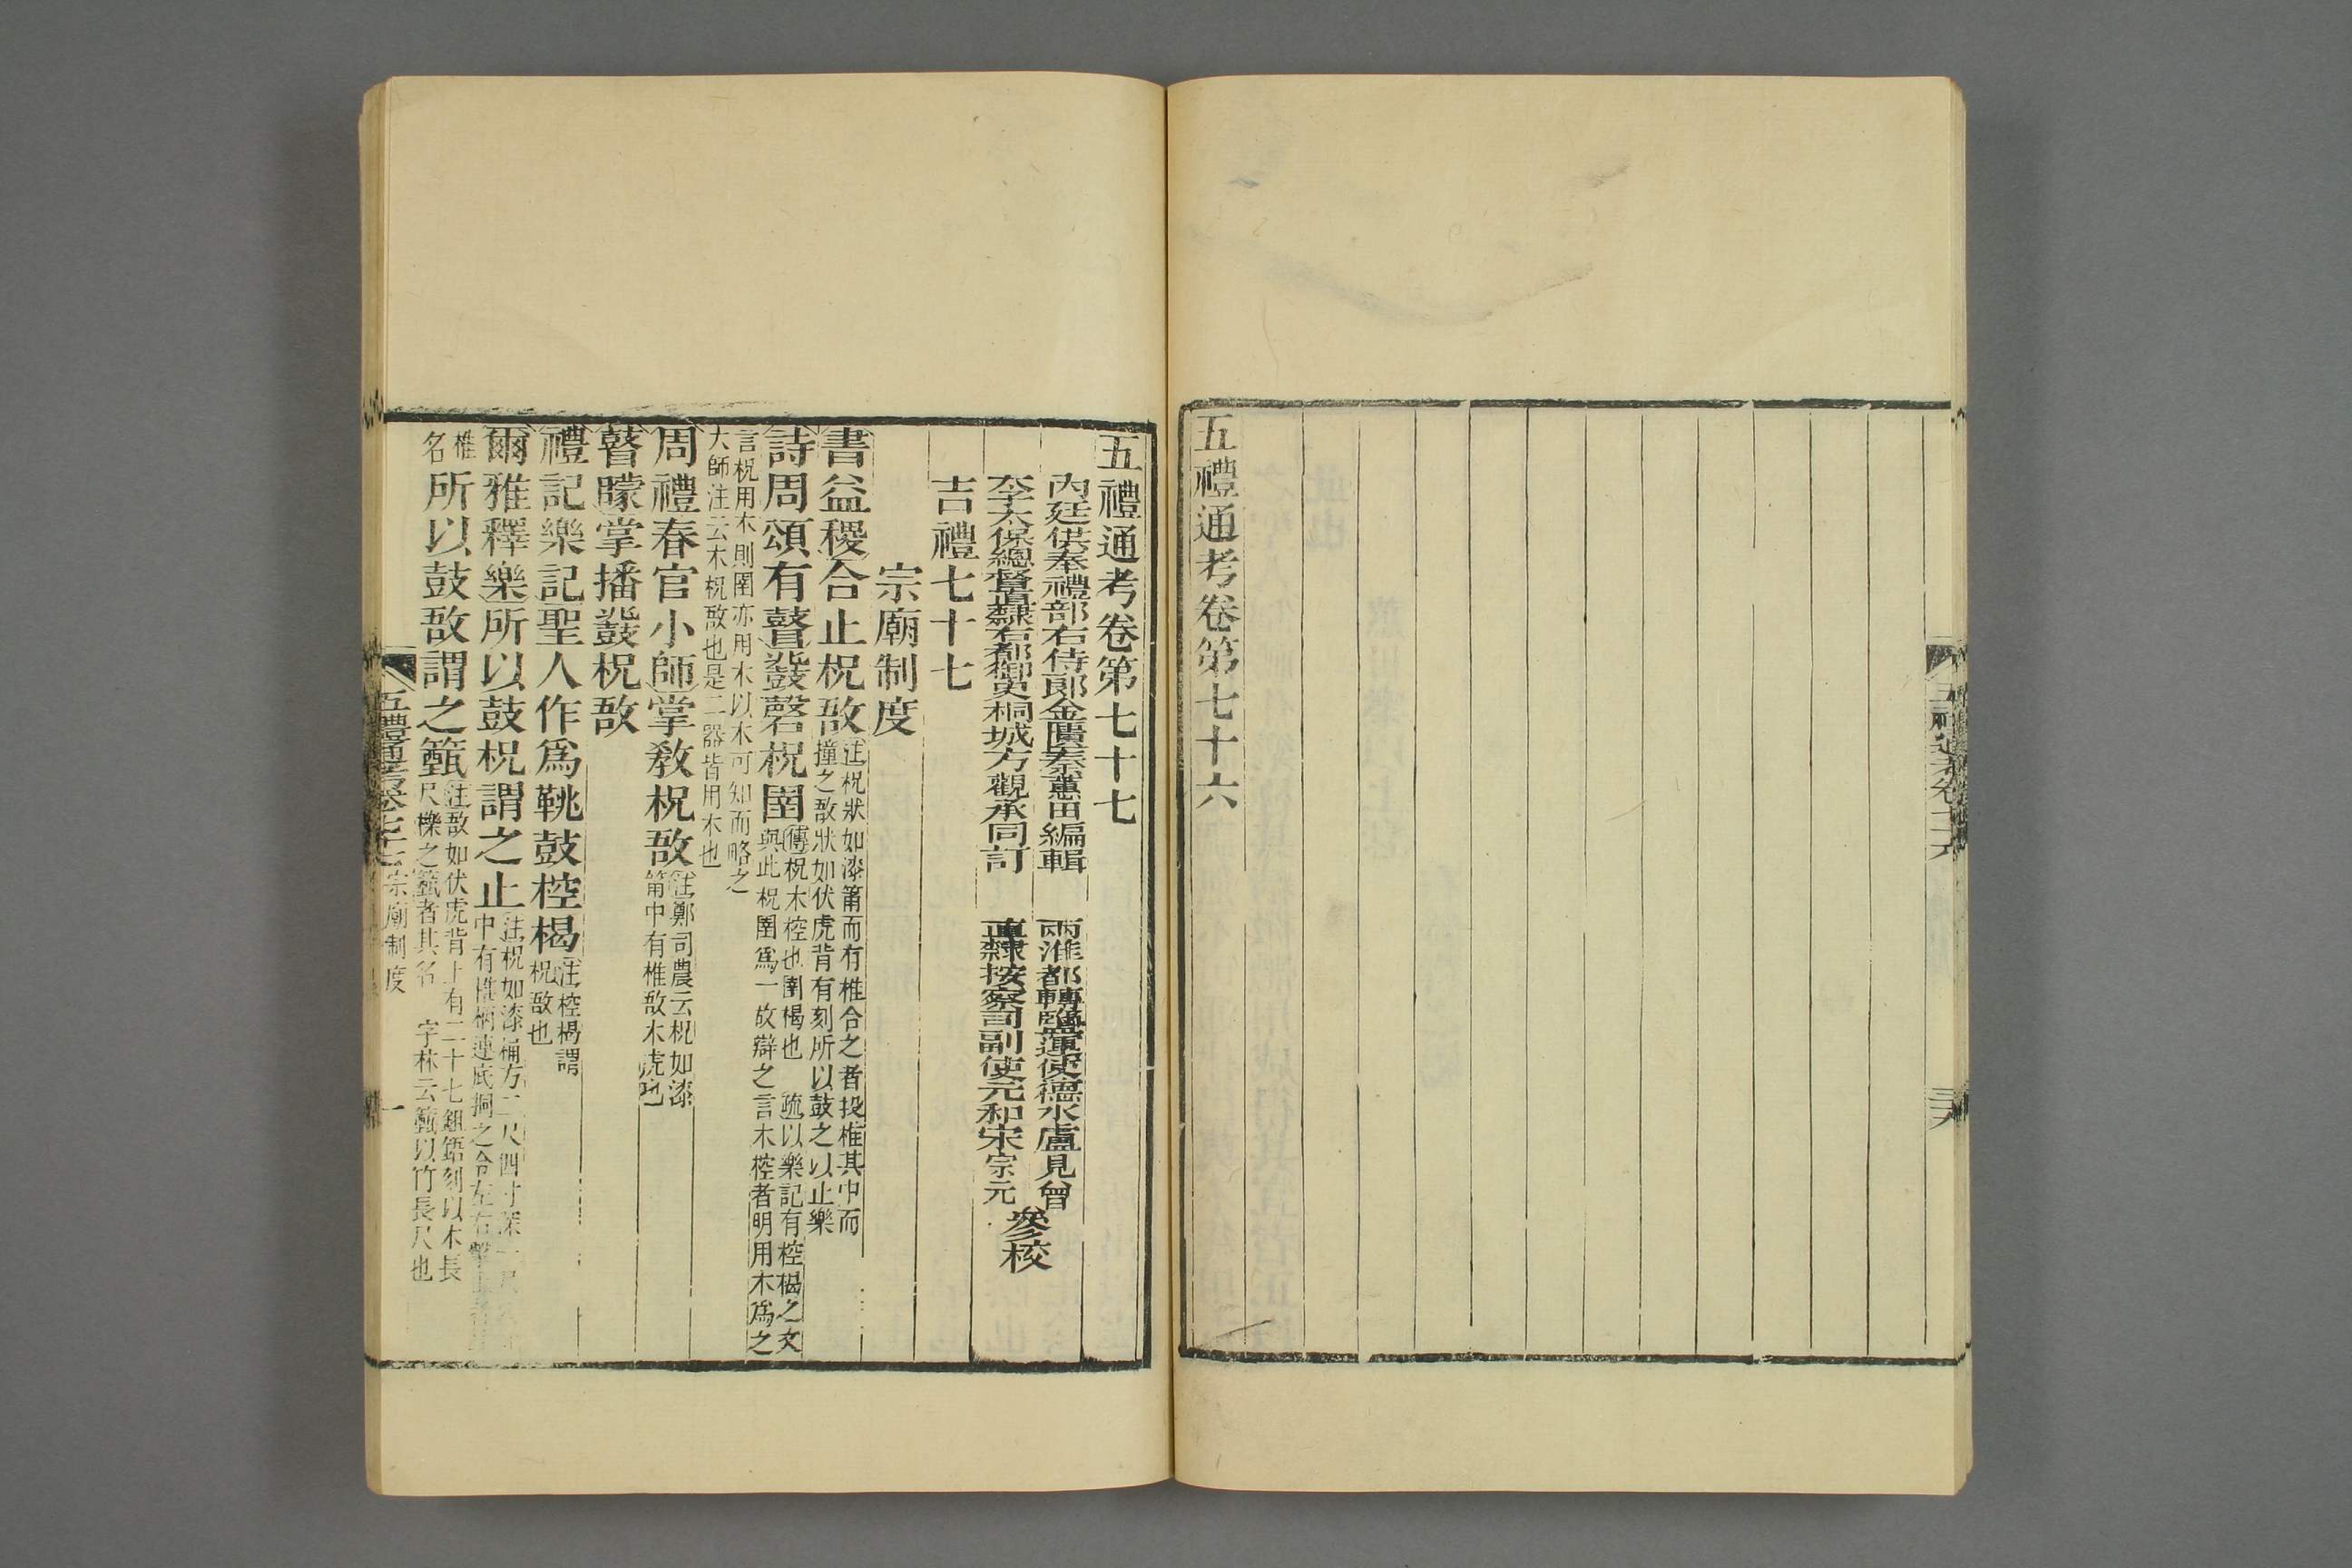 五禮通考卷第七十六
五禮通考卷第七十七
內廷供奉禮部右侍郎金匱秦蕙田編輯 兩淮都轉鹽運使德水盧見曾
李太保總督直隸右都御史桐城方觀承同訂 直隸按察司副使元和宋宗元
參校
吉禮七十七
宗廟制度
書益稷合止柷敔
注柷狀如漆筩而有椎合之者投椎其中而
撞之敔狀如伏虎背有刻所以鼓之以止樂
詩周頌有瞽鼗磬柷圉
傳柷木椌也圉楬也 疏以樂記有椌楬之文
與此柷圉爲一故辯之言木椌者明用木爲之
言柷用木則圉亦用木以木可知而略之
大師注云木柷敔也是二器皆用木也
周禮春官小師掌敎柷敔
注鄭司農云柷如漆
筩中有椎敔木虎也
瞽矇掌播鼗柷敔
禮記樂記聖人作爲鞉鼓椌楬
注椌楬謂
柷敔也
爾雅釋樂所以鼓柷謂之止
注柷如漆桶方二尺四寸深一尺
中有椎柄連底挏之令左右擊
椎
名
所以鼓敔謂之籈
注敔如伏虎背上有二十七鉏鋙刻以木長
尺櫟之籈者其名 字林云籈以竹長尺也
五禮通考卷七十七 宗廟制度 一